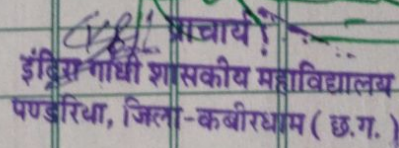 प्राचार्य
इंदिरा गांधी शासकीय महाविद्यालय
पण्डरिया, जिला-कबीरधाम ( छ.ग. )